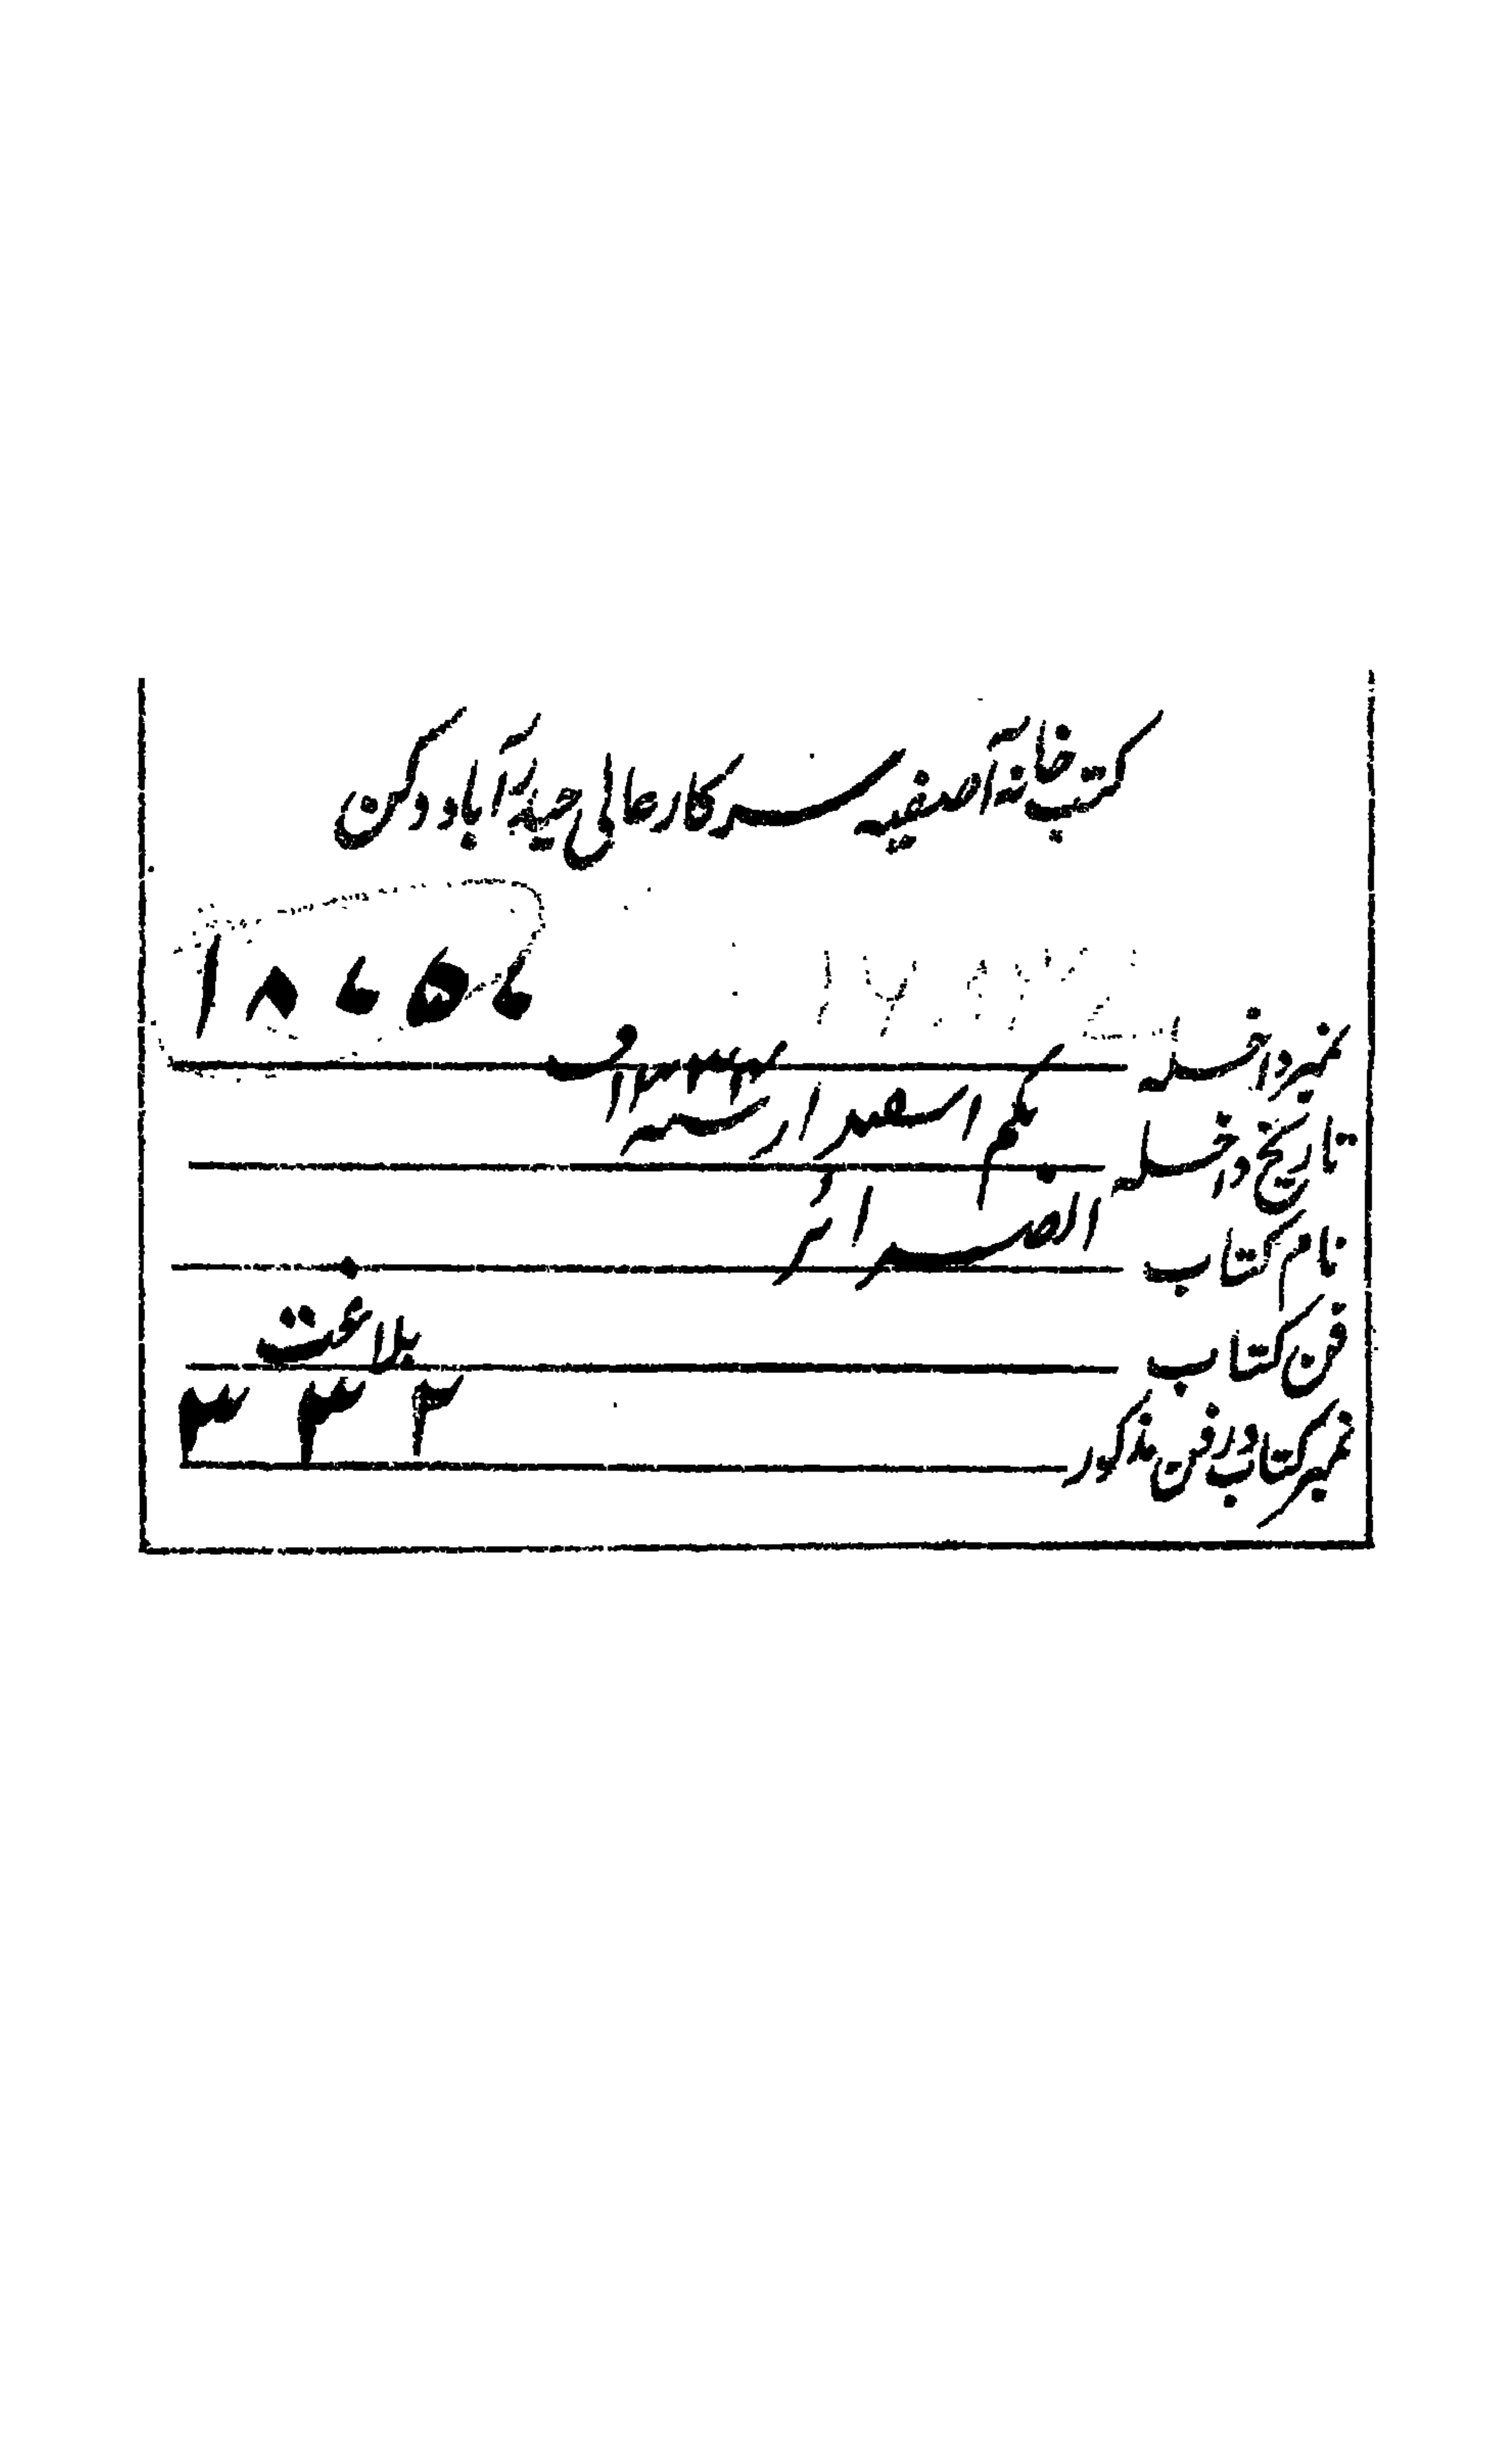 کتب خانہ آصفیہ سرکار عالی حیدرآباد دکن
نمبر داخلہ ۱۸۷۵۷
تاریخ داخلہ یکم اسفندار سنہ
نام کتاب الضرائر
فن کتاب بلاغت
نمبر کتاب در فن مذکور ۳۳۲